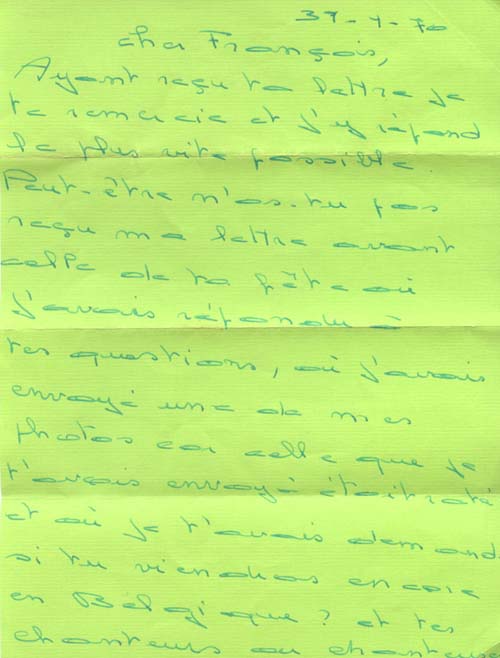 31-1-70
cher François,
Ayant reçu ta lettre je
te remercie et j'y répond
le plus vite possible.
Peut-être n'as-tu pas
reçu ma lettre avant
celle de ta fête où
j'avais répondu à
tes questions, où j'avais
envoyé une de mes
photos car celle que je
t'avais envoyé était raté
et où je t'avais demand
si tu viendras encore
en Belgique ? et tes
chanteurs ou chanteuse